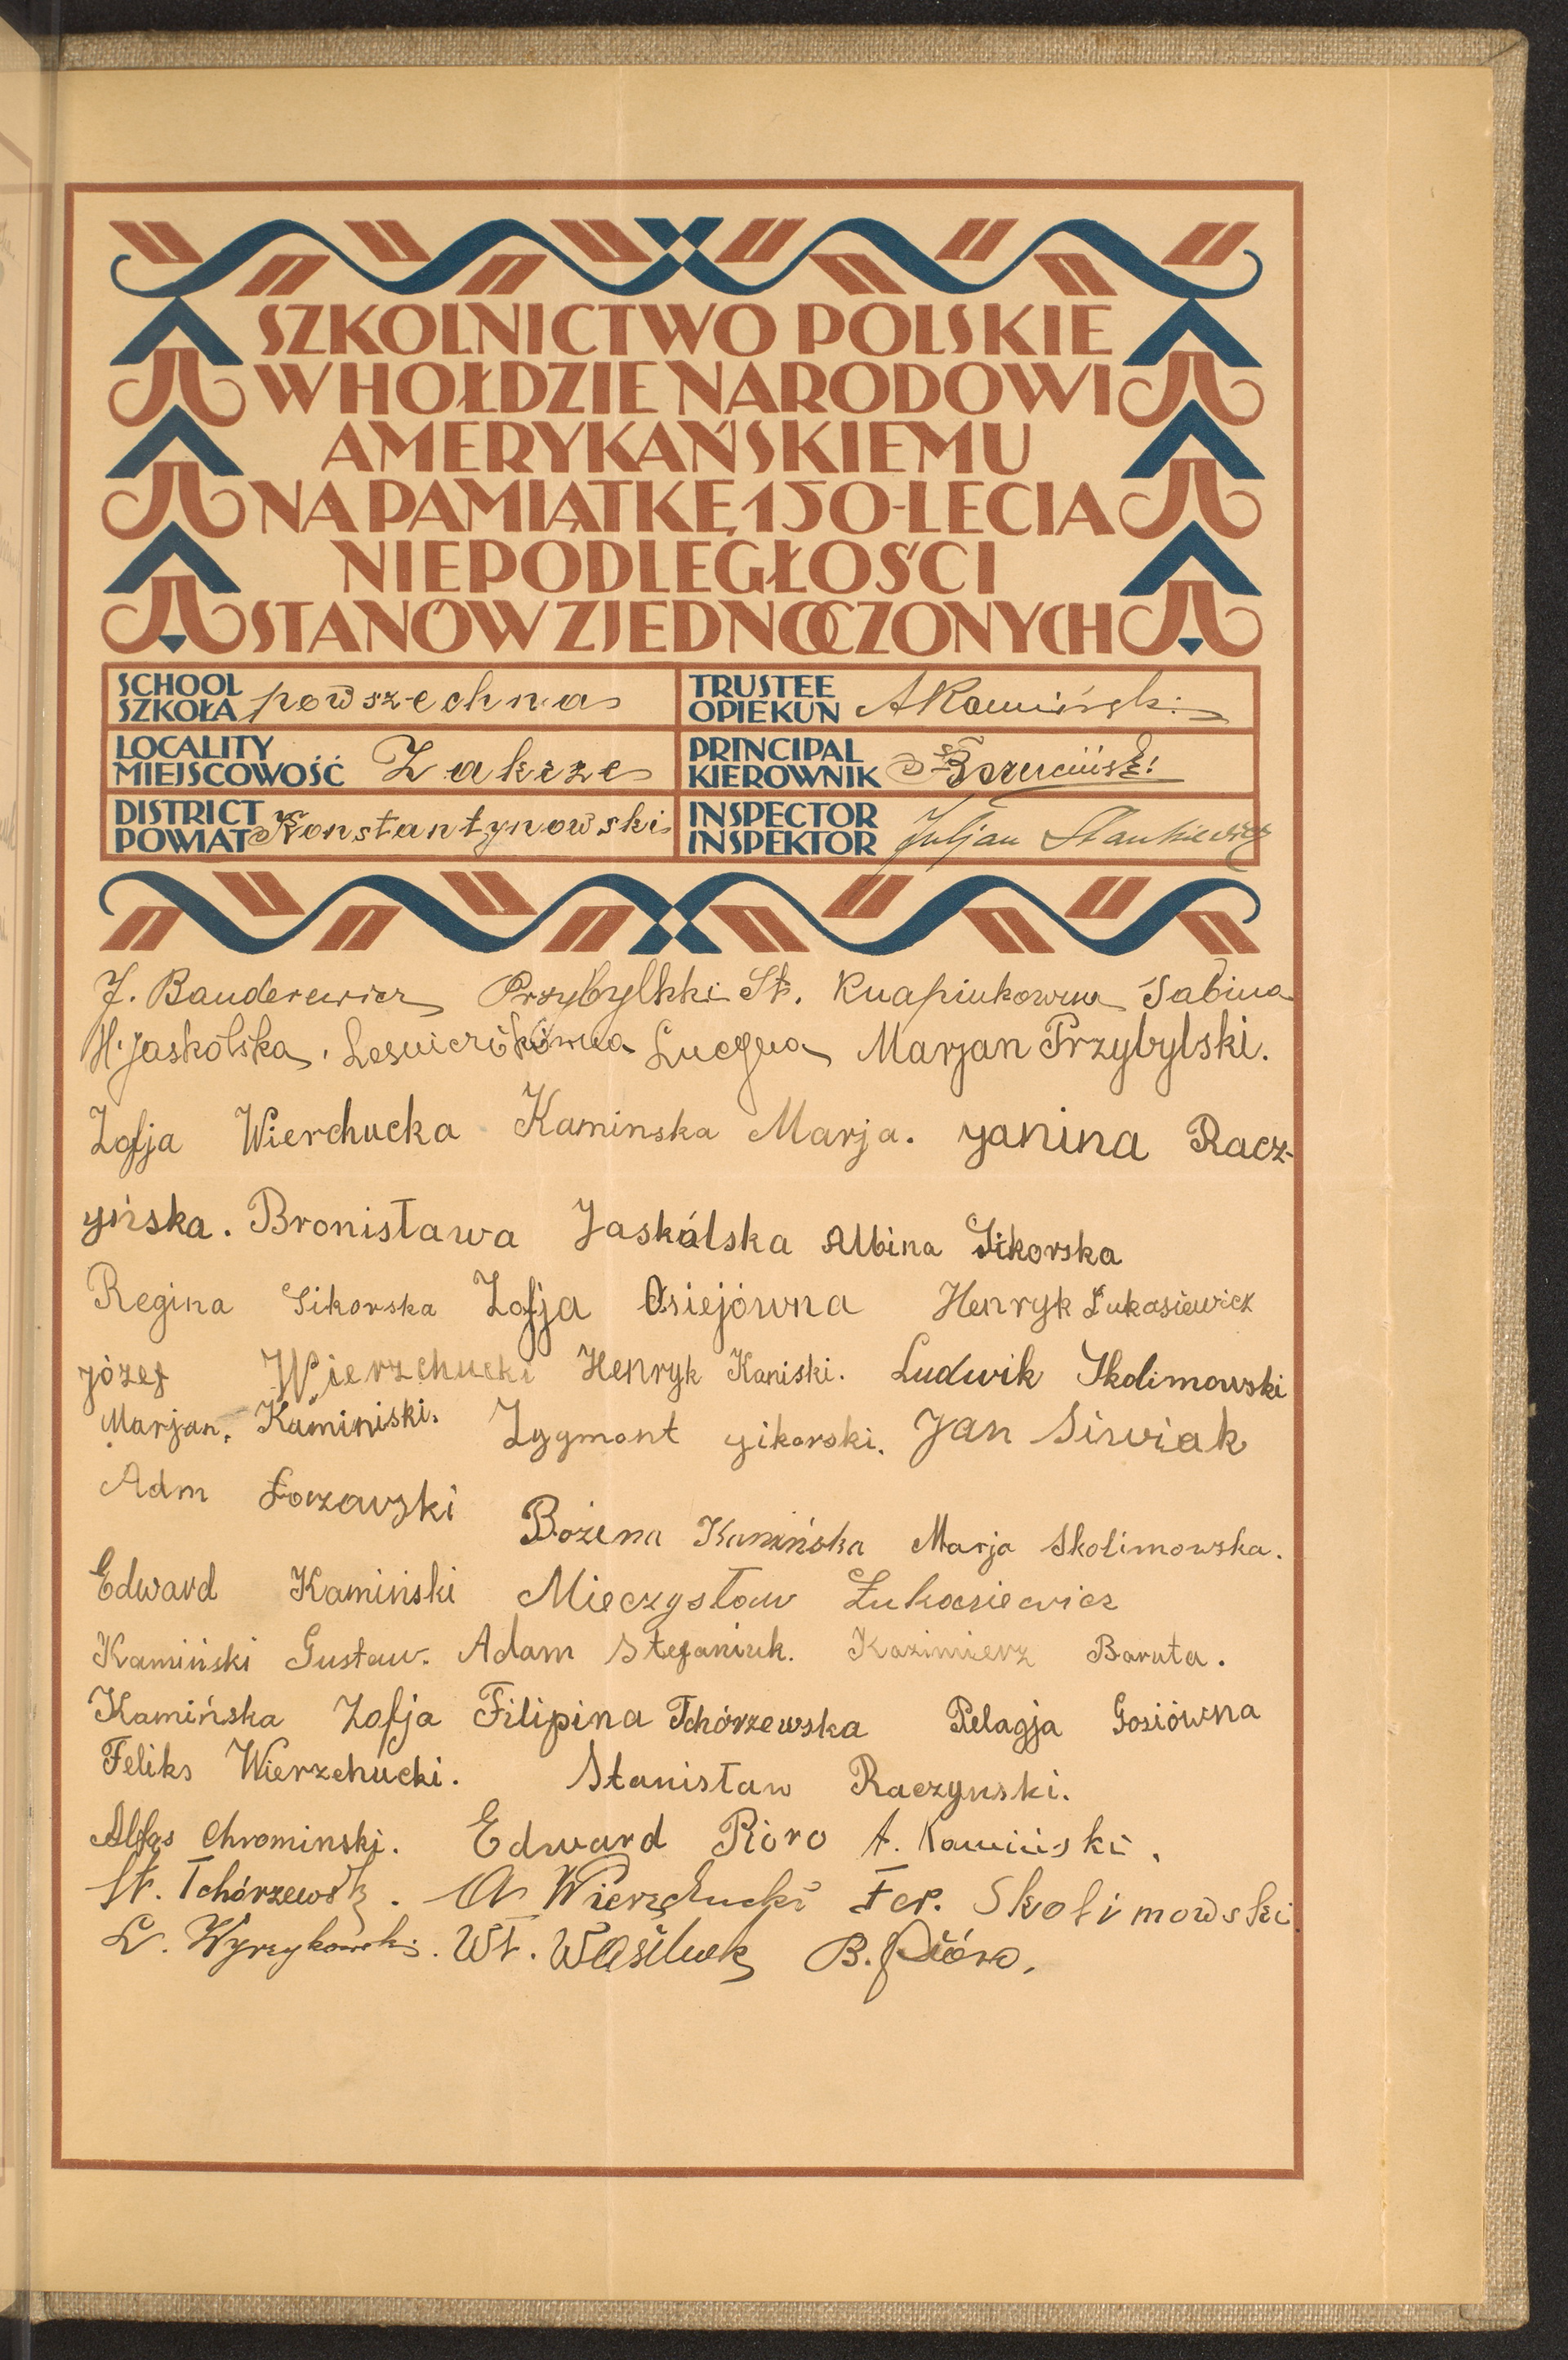 SZKOLNICTWO POLSKIE
W HOŁDZIE NARODOWI
AMERYKAŃSKIEMU
NA PAMIĄTKĘ 150-LECIA
NIEPODLEGŁOŚCI
STANÓW ZJEDNOCZONYCH
SCHOOL
SZKOŁA powszechna
TRUSTEE
OPIEKUN A Kamiński
LOCALITY
MIEJSCOWOŚĆ Zakrze
PRINCIPAL
KIEROWNIK
DISTRICT
POWIAT Konstantynowski
INSPECTOR
INSPEKTOR Juljan Stankiewicz
J. Banderewicz Przybylski St. Knapiukowna Sabina
H. Jaskólska. Lucyna Marjan Przybylski.
Zofja Wierchucka Kaminska Marja. Janina Racz-
yńska. Bronisława Jaskálska Albina Sikorska
Regina Sikorska Zofja Osiejówna Henryk Łukasiewicz
Józef Wierzchucki Henryk Kaniski. Ludwik Skolimowski
Marjan. Kaminiski. Zygmont Sikorski. Jan Siwiak
Adm Łoczawski
Bożena Kamińska Marja Skolimowska.
Edward Kamiński Mieczysław Łukasiewicz
Kamiński Gustaw. Adam Stefaniuk. Kazimierz Baruta.
Kamińska Zofja Filipina Tchórzewska Pelagja Gosiówna
Feliks Wierzchucki. Stanisław Raczynski.
Chrominski. Edward Pioro A. Kamiński.
St. Tchórzewski. A Wierzchucki Fer. Skolimowski
L. Wyrzykowski. Wł. Wasiluk B. Pióro.